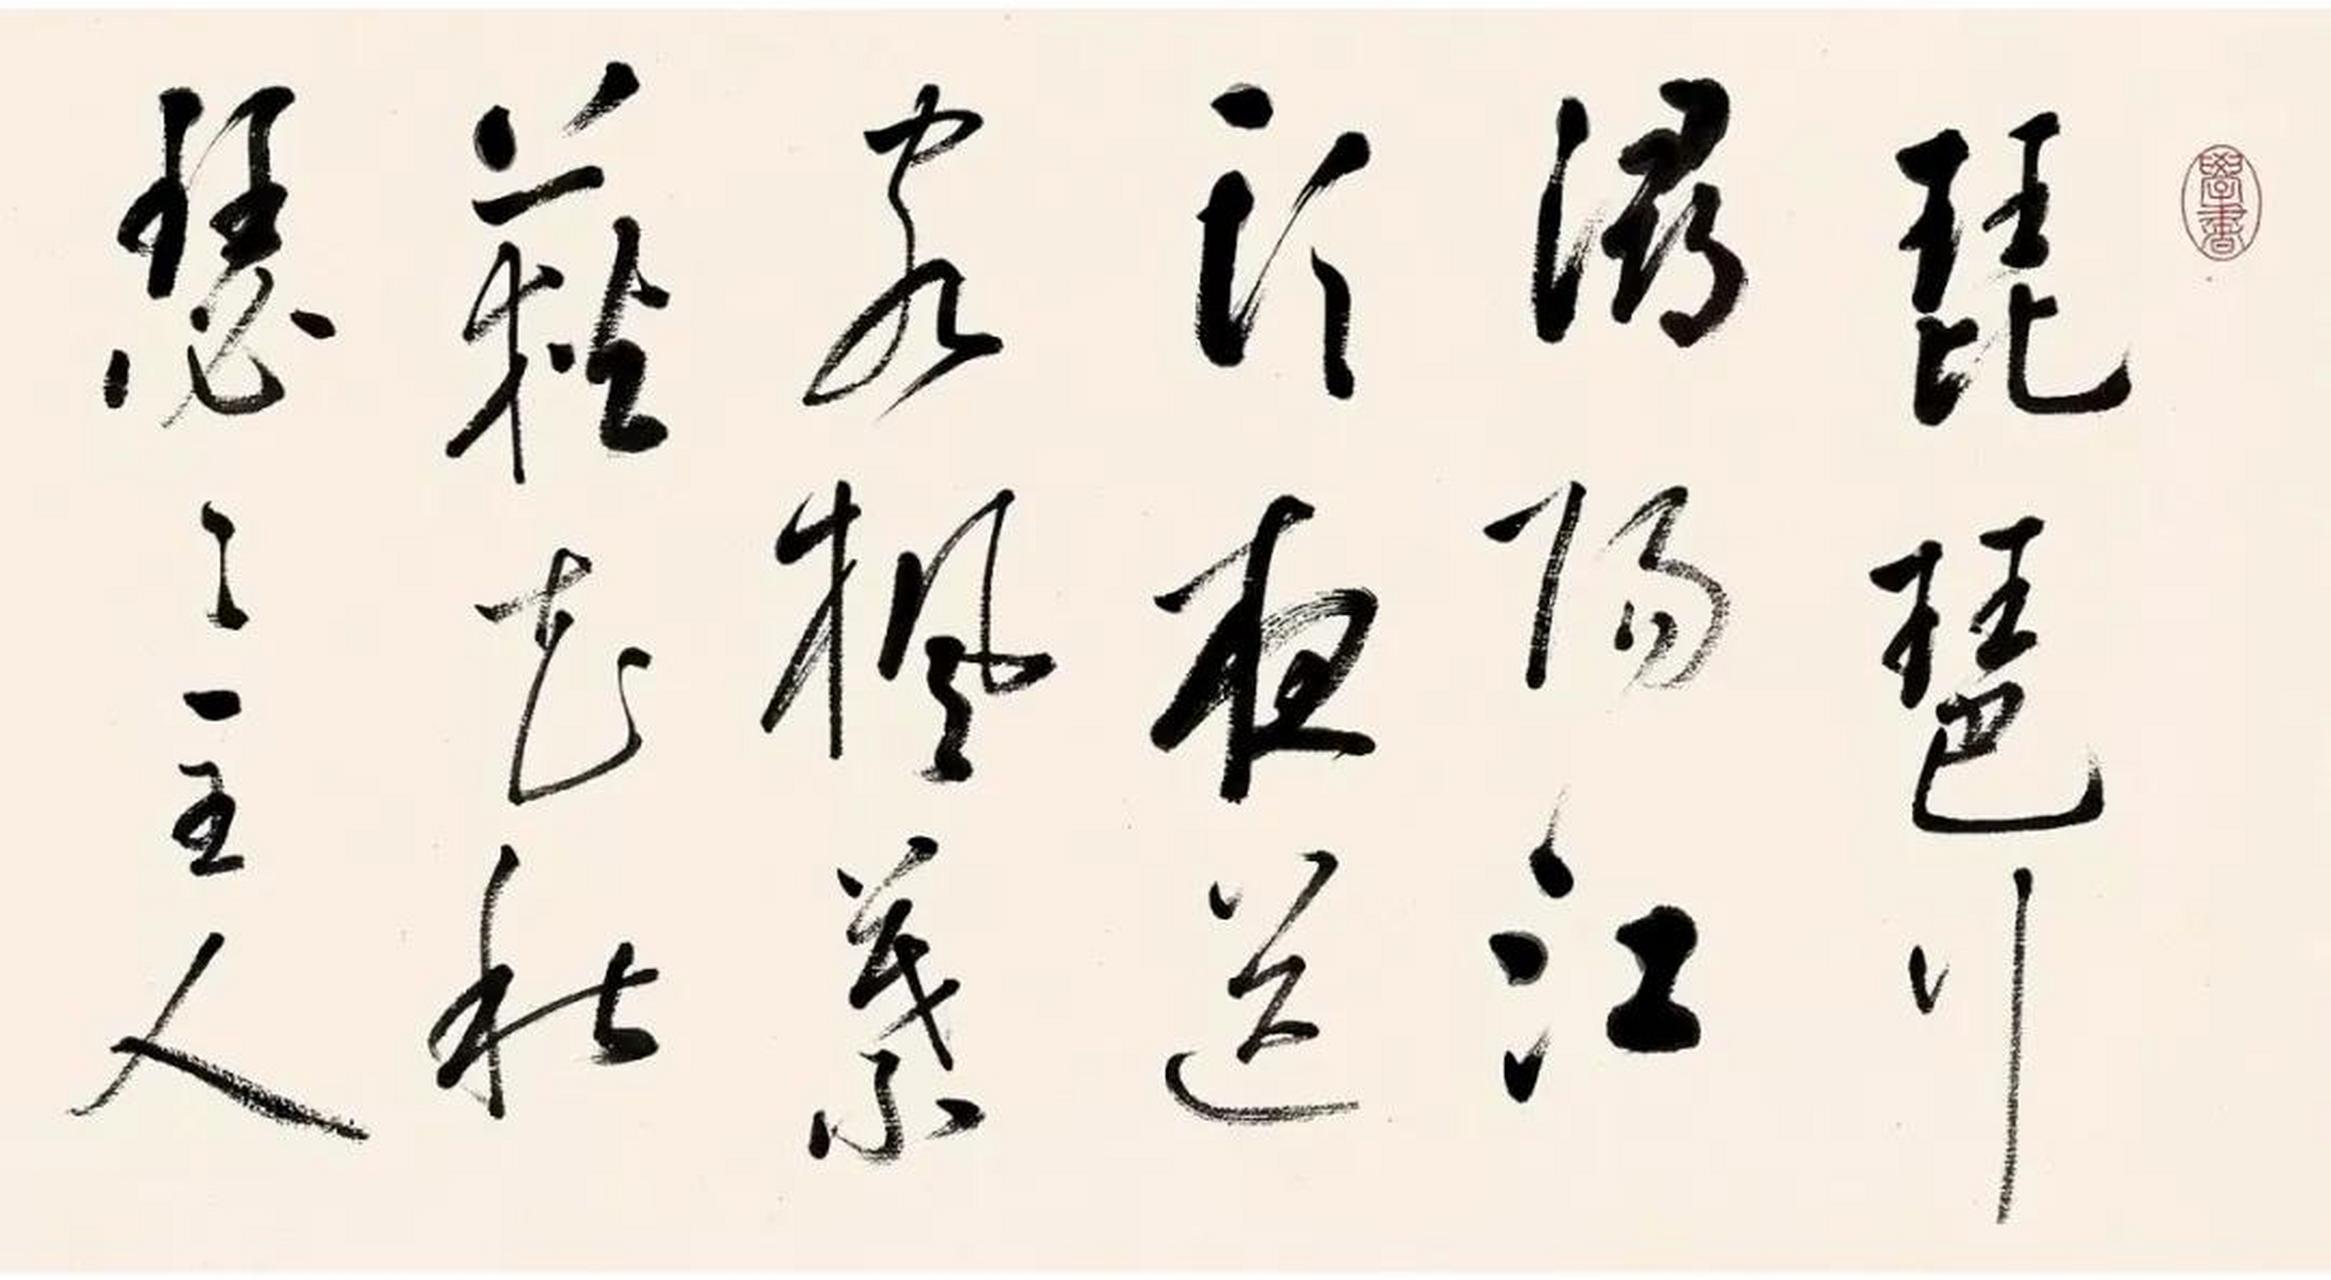 學書
琵琶行
潯陽江
頭夜送
客楓葉
荻花秋
瑟々主人